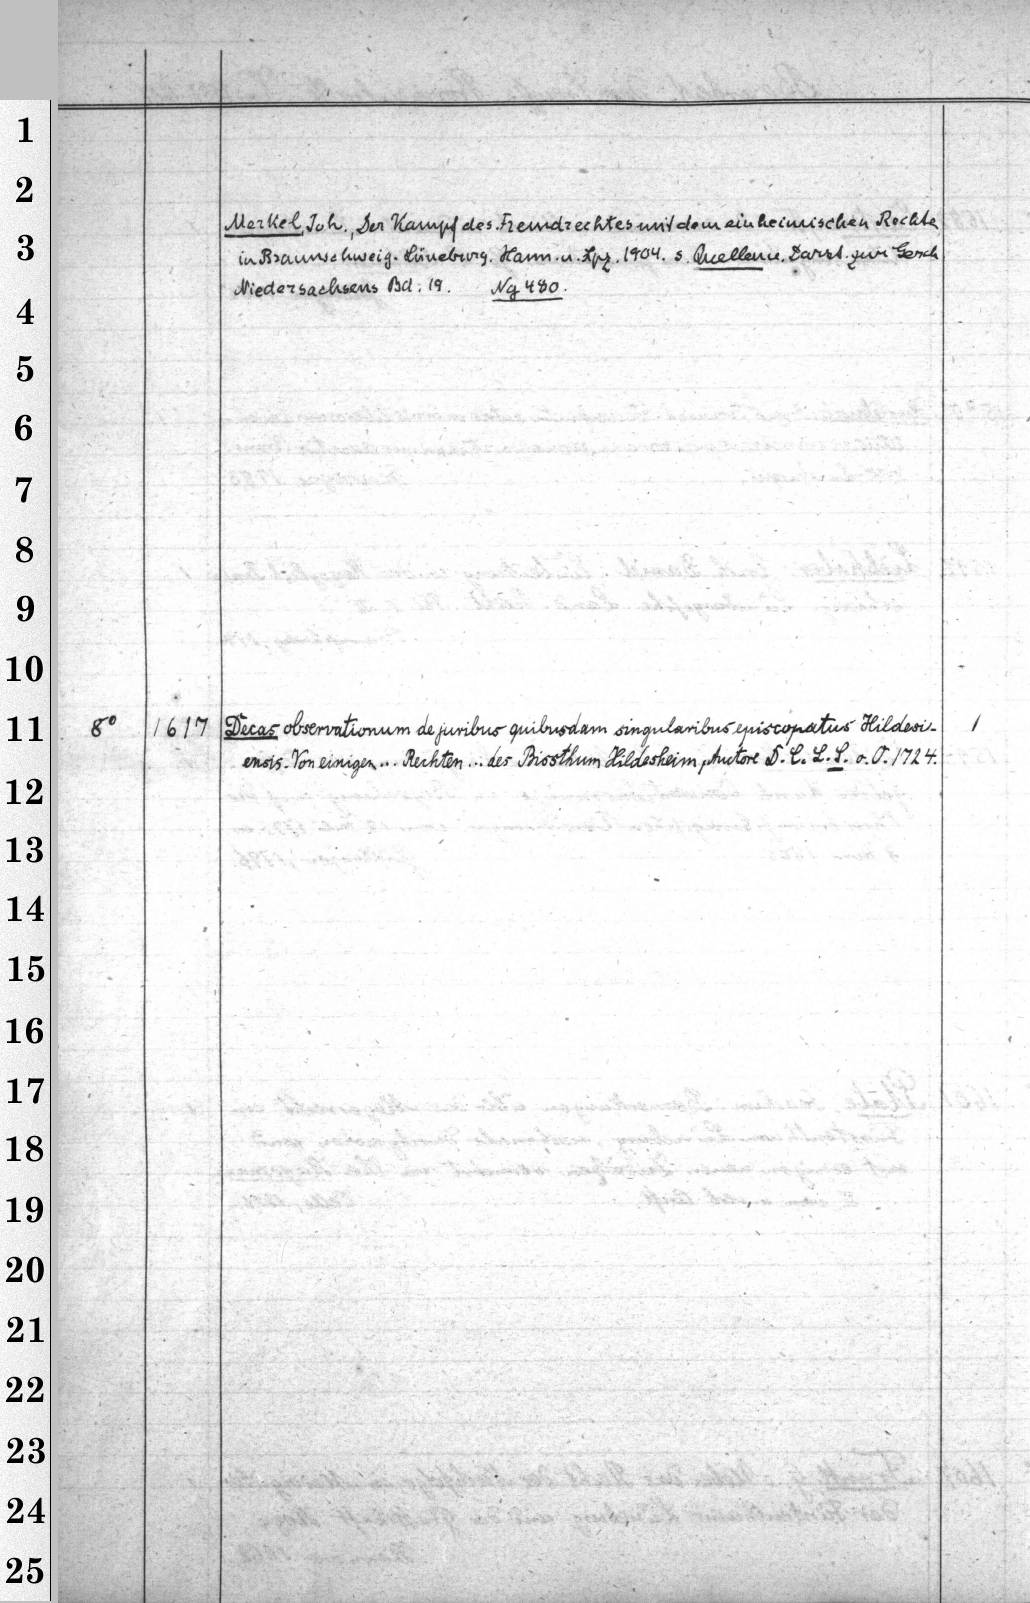 1
2
Merkel, Joh., Der Kampf des Fremdrechtes mit dem einheimischen Rechte
3
in Braunschweig-Lüneburg. Hann. u. Lpz. 1904. s. Quellen u. Darst. zur Gesch
Niedersachsens Bd. 19. Ng 480.
4
5
6
7
8
9
10
11 8° 1617 Decas observationum de juribus quibusdam singularibus episcopatus Hildesi- 1
ensis. Von einigen ... Rechten ... des Bissthum Hildesheim, Auctore D. C. L. S. o. O. 1724.
12
13
14
15
16
17
18
19
20
21
22
23
24
25